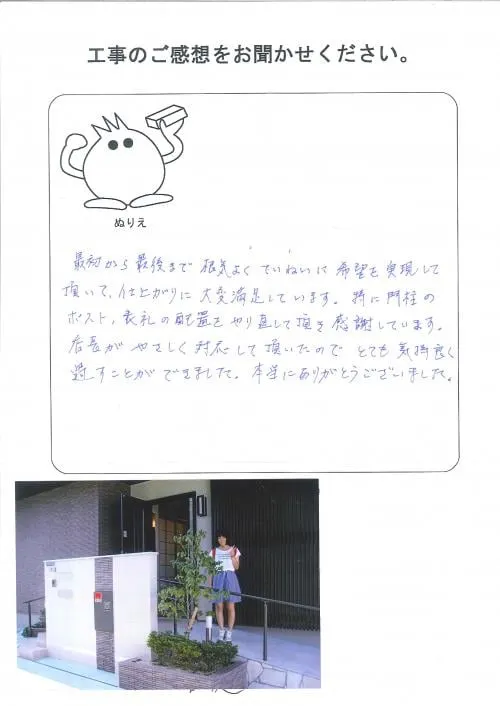 工事のご感想をお聞かせください。
ぬりえ
最初から最後まで根気よくていねいに希望を実現して
頂いて、仕上がりに大変満足しています。特に門柱の
ポスト、表札の配置をやり直して頂き感謝しています。
店長がやさしく対応して頂いたのでとても気持良く
過すことができました。本当にありがとうございました。